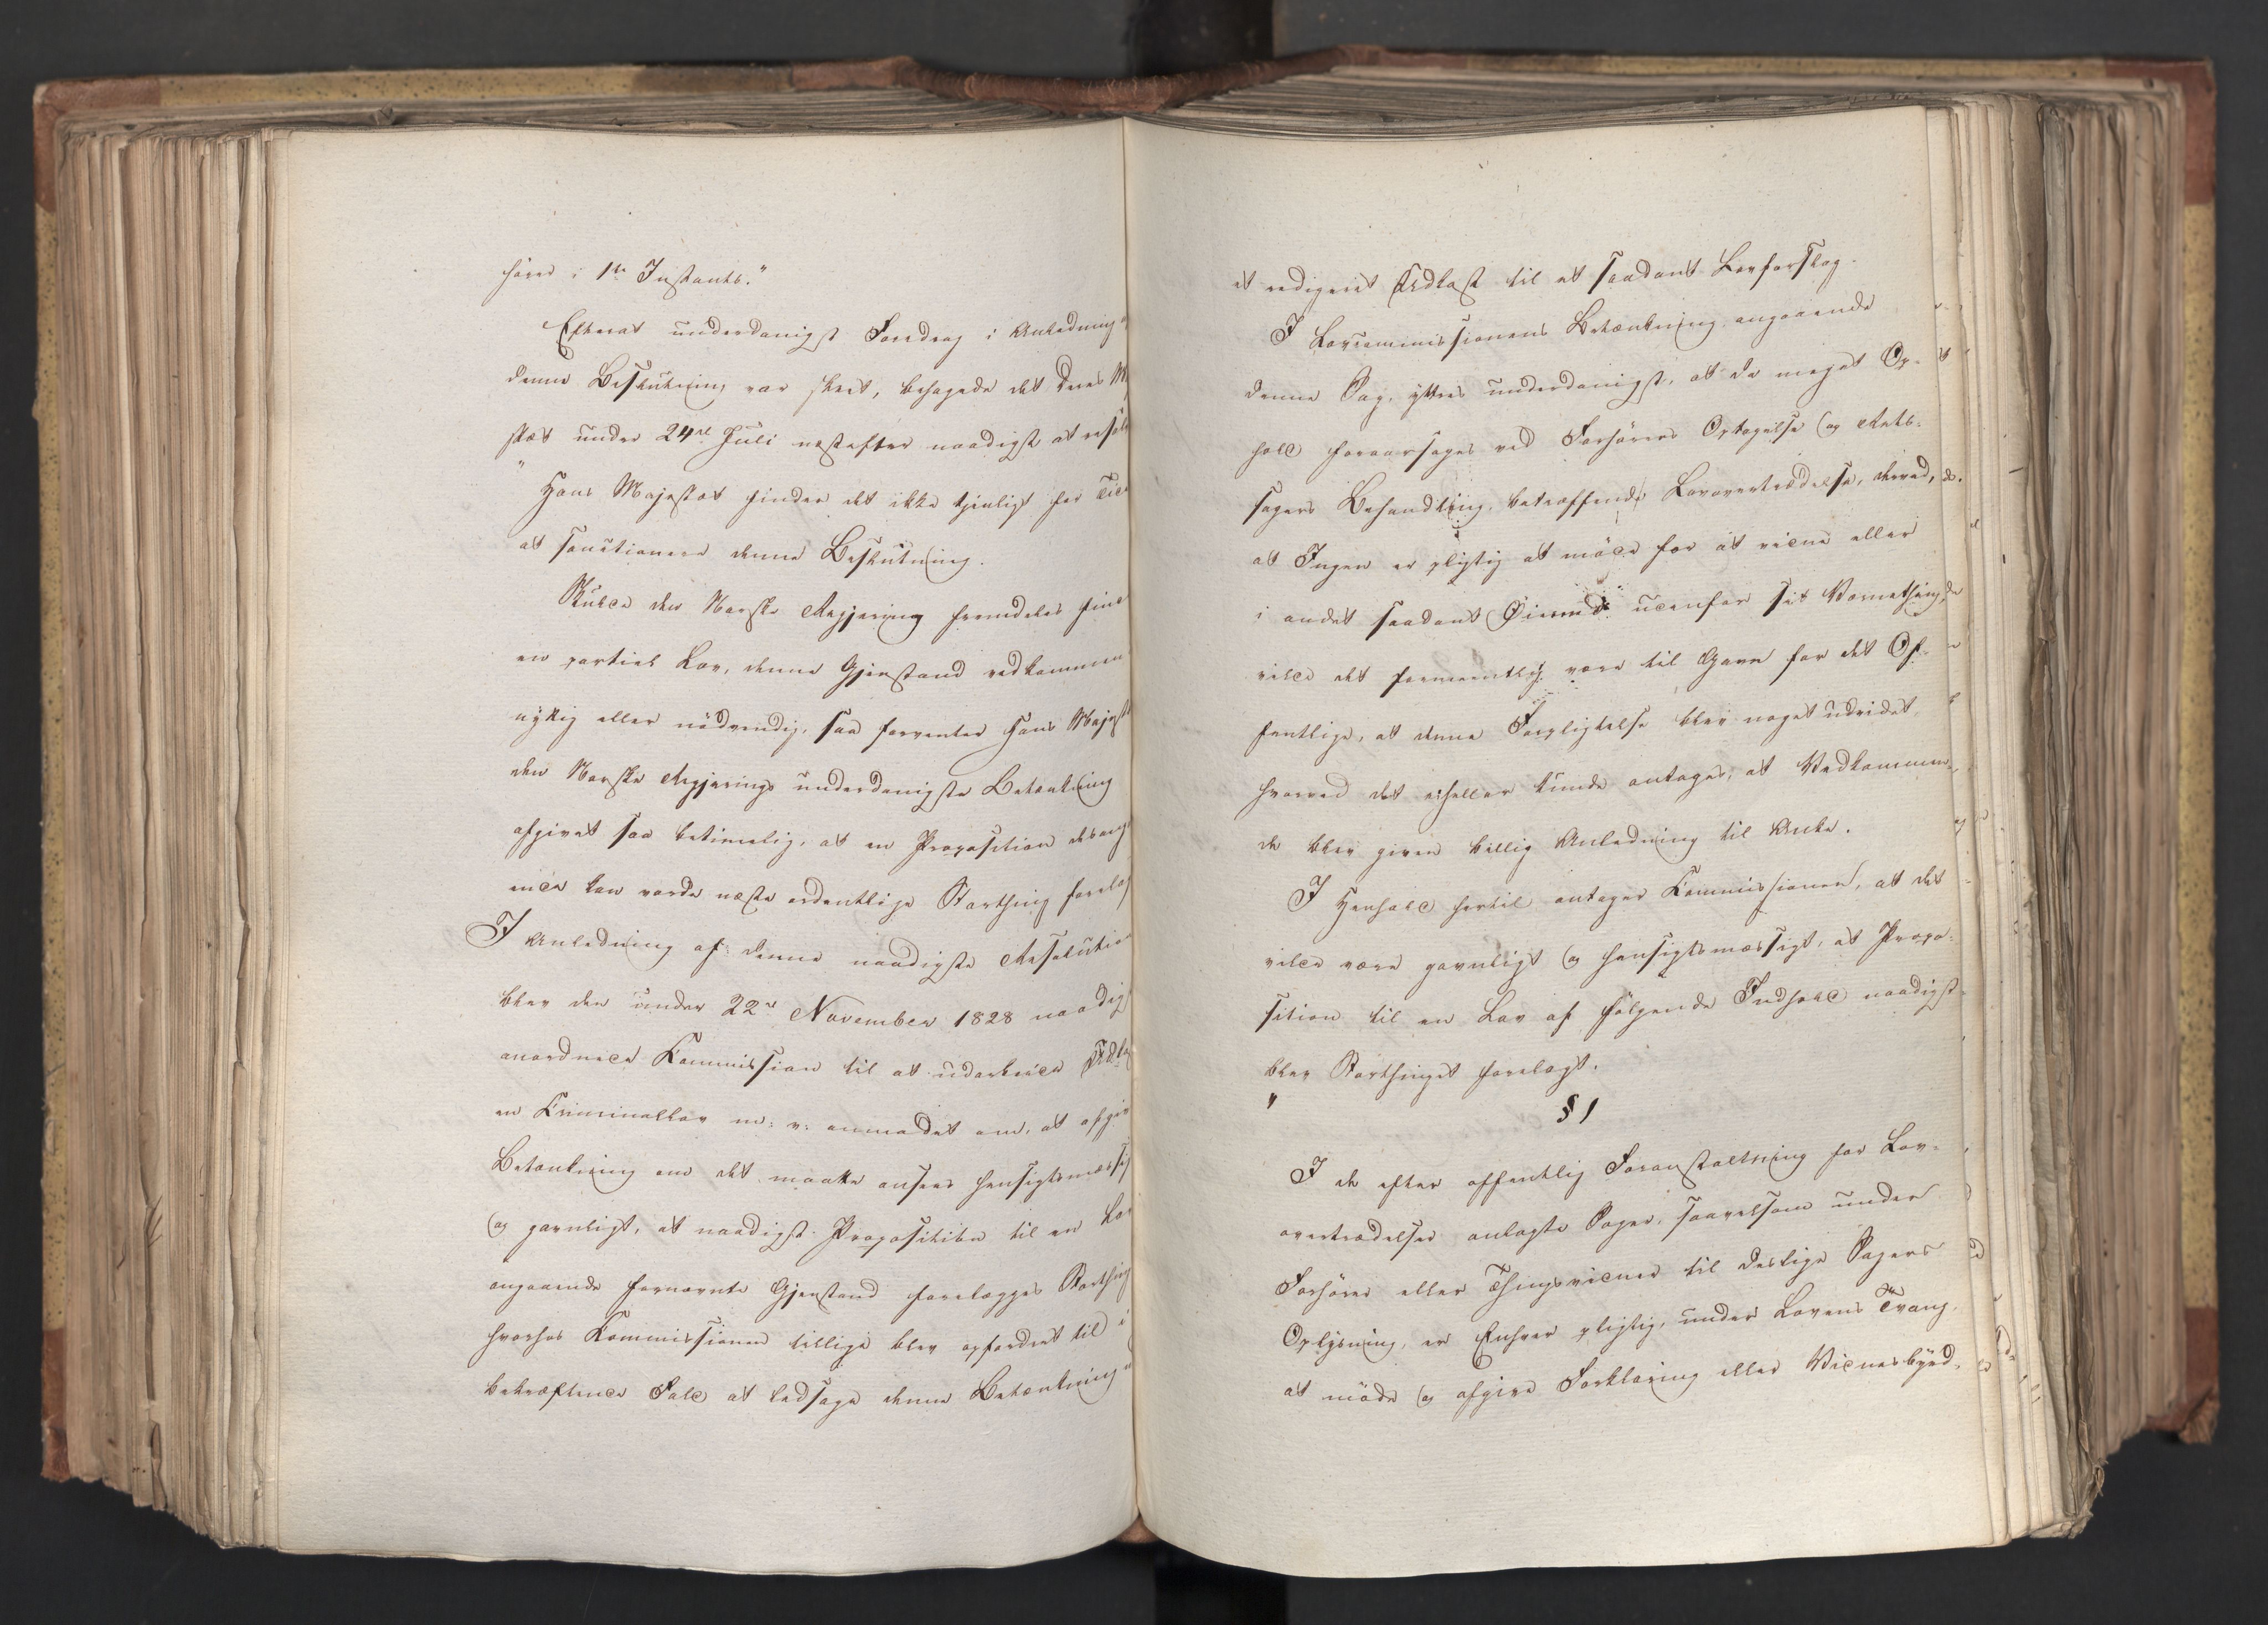 hører i 1ste Instants."
Efterat underdanigst Foredrag i Anledning
denne Beslutning var skeet, behagede det Deres M
stæt under 24de Juli næstefter naadigst at resol
"Hans Majestæt finder det ikke tjenligt for Tid
at sanctionere denne Beslutning.
Skulde den Norske Regjering fremdeles find
en partiel Lov, denne Gjenstand vedkommen
nyttig eller nødvendig, saa forventer Hans Majest
den Norske Regjerings underdanigste Betænkning
afgivet saa betimelig, at en Proposition desang
ende kan vorde næste ordentlige Storthing forelag
I Anledning af denne naadigste Resolution
blev den under 22de November 1828 naadigst
anordnede Kommission til at udarbeide Udka
en Kriminallov m: v: anmodet om, at afgiv
Betænkning om det maatte ansees hensigtsmæssig
og gavnligt, at naadigst Proposition til en Lov
angaaende fornævnte Gjenstand forelægges Storthing
hvorhos Kommissionen tillige blev opfordret til i
bekræftende Fald at ledsage denne Betænkning
et redigeret Udkast til et saadant Lovforslag.
I Lovcommissionens Betænkning angaaende
denne Sag, yttres underdanigst, at da meget Op-
hold foraarsages ved Forhørers Optagelse og Rets-
sagers Behandling, betræffende Lovovertrædelse, derved,
at Ingen er pligtig at møde for at vidne eller
i andet saadant Øiemed udenfor sit Værnething,
vilde det formeentlig være til Gavn for det Of-
fentlige, at denne Forpligtelse blev noget udvidet,
hvorved det eiheller kunde antages, at Vedkommen-
de blev given billig Anledning til Anke.
I Henhold hertil antager Kommissionen, at det
vilde være gavnligt og hensigtsmæssigt, at Propo-
sition til en Lov af følgende Indhold naadigst
blev Storthinget forelagt.
" § 1
I de efter offentlig Foranstaltning for Lov-
overtrædelser anlagte Sager, saavelsom under
Forhører eller Thingsvidner til deslige Sagers
Oplysning, er Enhver pligtig, under Lovens Tvang,
at møde og afgive Forklaring eller Vidnesbyrd,